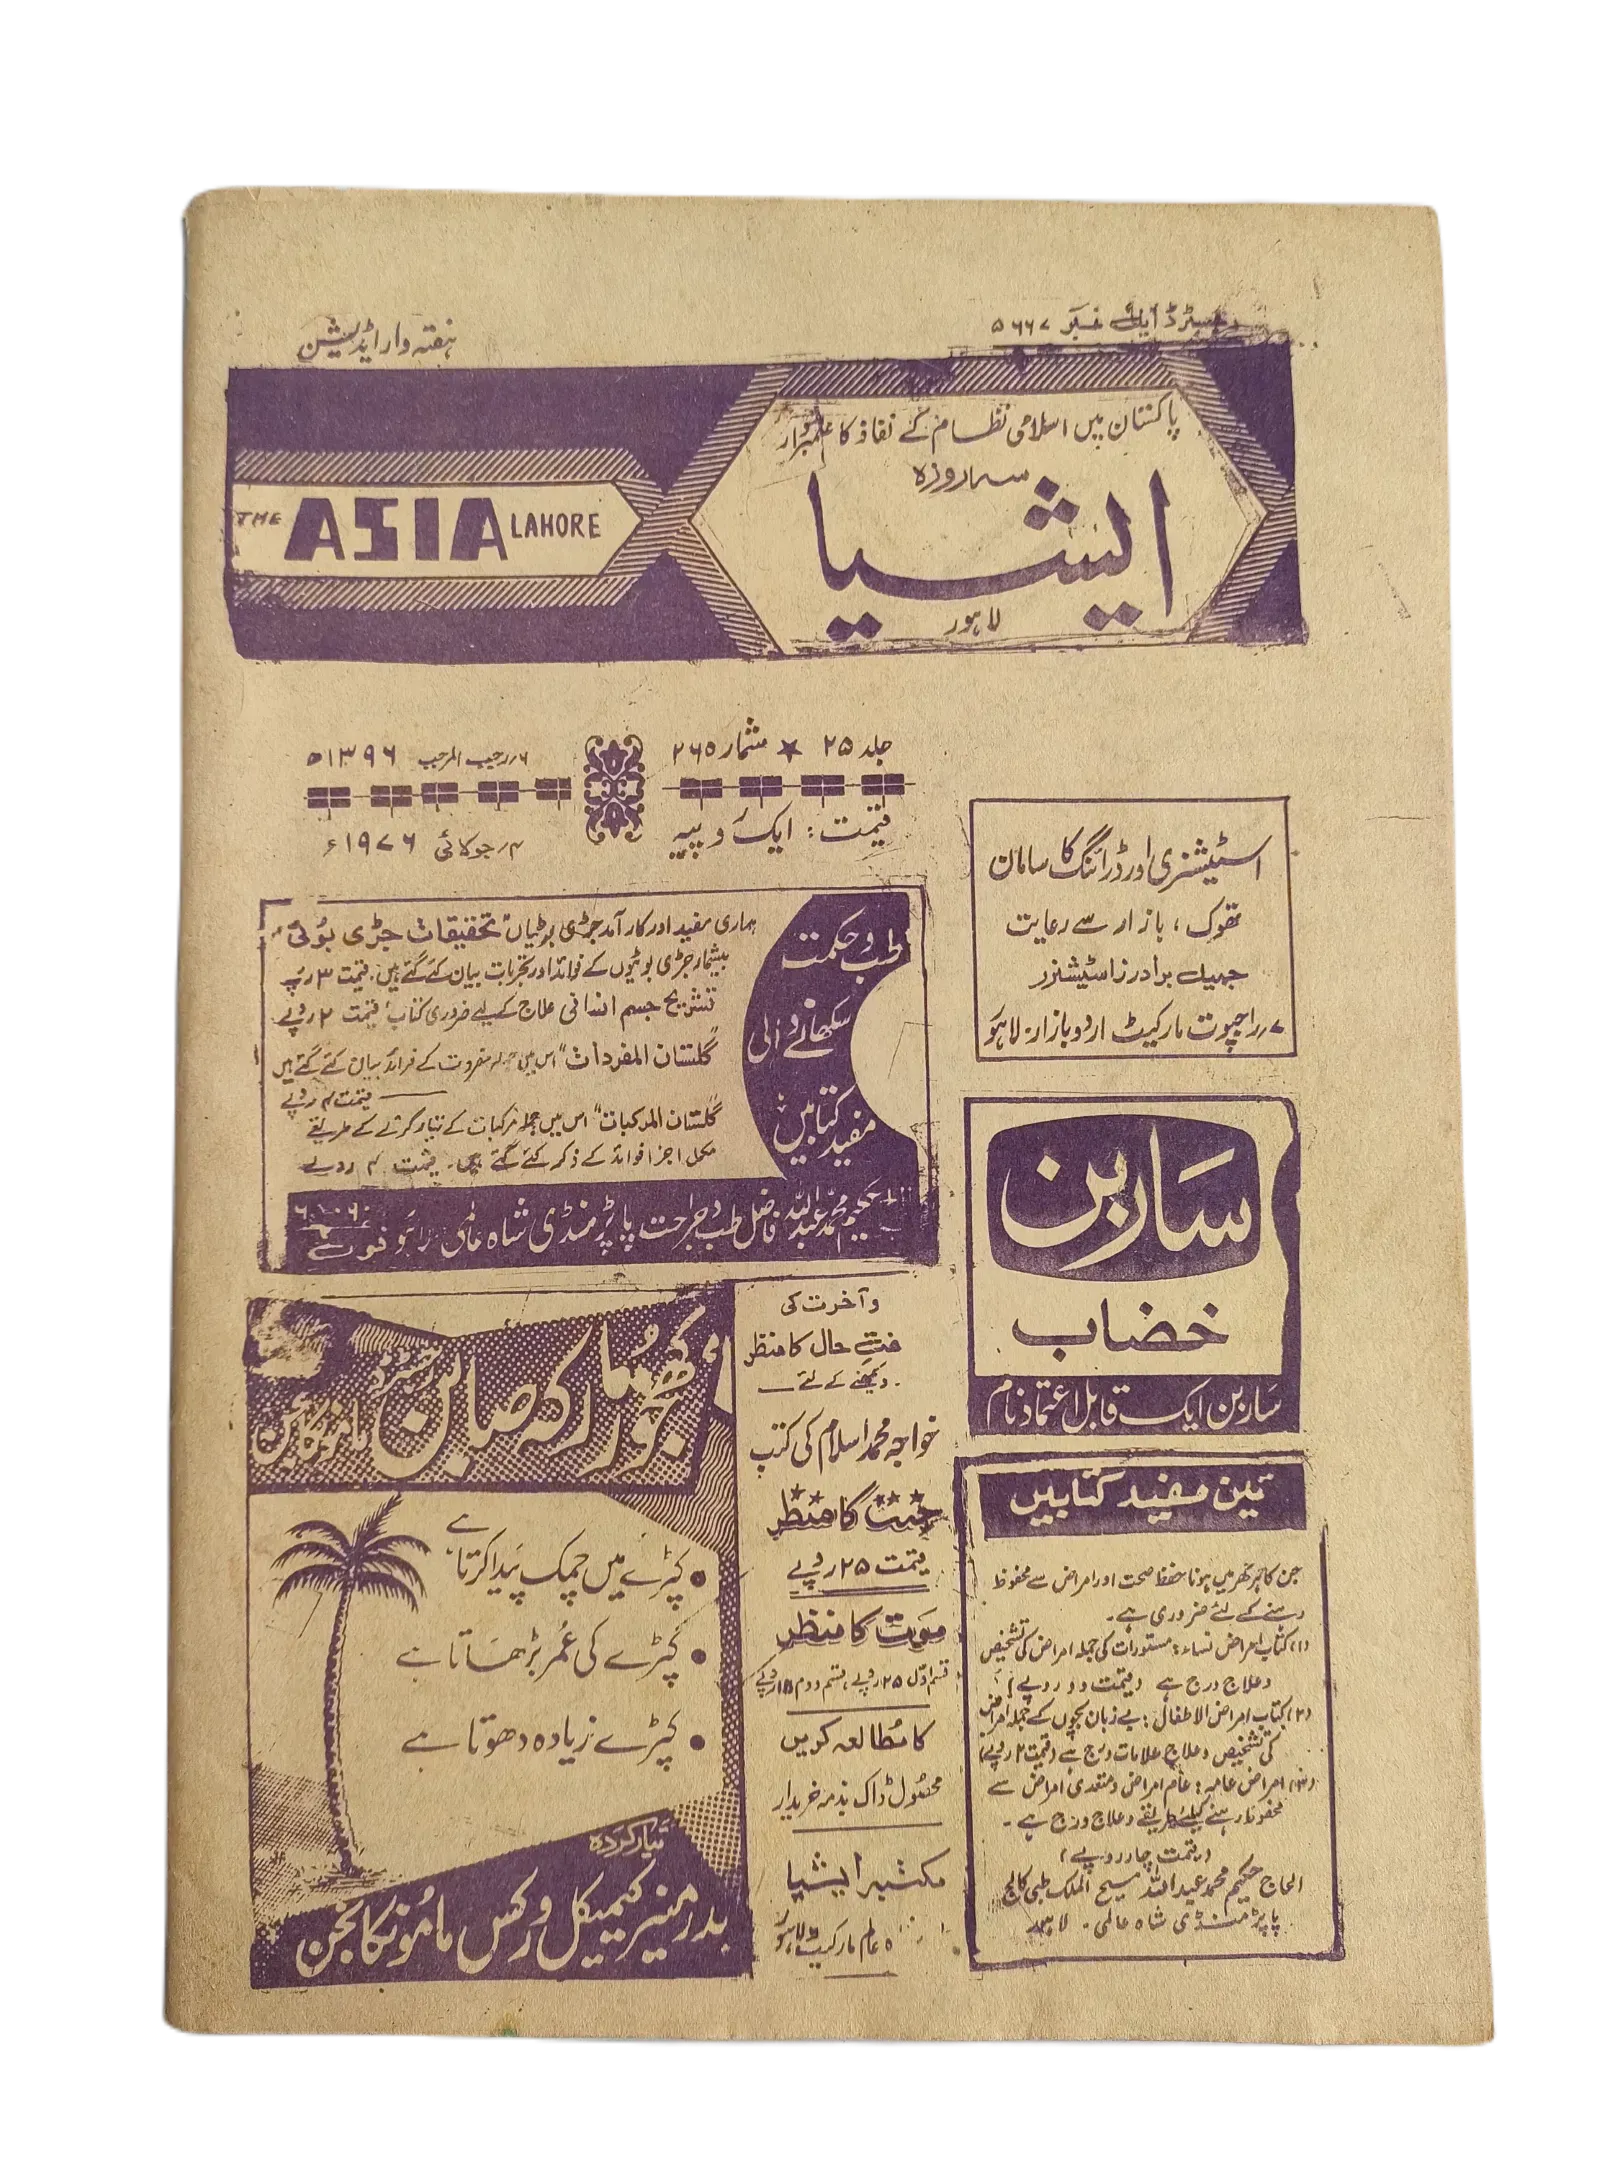 رجسٹرڈ ایل نمبر ۵۶۶۷
ہفتہ وار ایڈیشن
پاکستان میں اسلامی نظام کے نفاذ کا علمبردار
سہ روزہ
ایشیا
لاہور
THE ASIA LAHORE
جلد ۲۵ ★ شمار ۲۶۵
۶؍ رجب المرجب ۱۳۹۶ھ
قیمت : ایک روپیہ
۴؍ جولائی ۱۹۷۶ء
اسٹیشنری اور ڈرائنگ کا سامان
تھوک ، بازار سے رعایت
جمیل برادرز اسٹیشنرز
۷؍ راجپوت مارکیٹ اردو بازار، لاہور
طب و حکمت
سکھانے والی
مفید کتابیں
ہماری مفید اور کارآمد جڑی بوٹیاں "تحقیقات جڑی بوٹی"
بیشمار جڑی بوٹیوں کے فوائد اور تجربات بیان کئے گئے ہیں۔ قیمت ۳ روپے
تشریح جسم انسانی علاج کے لیے ضروری کتاب قیمت ۲ روپے
گلستان المفردات" اس میں جملہ مفردات کے فوائد بیان کئے گئے ہیں
قیمت ۴ روپے
گلستان المرکبات" اس میں جملہ مرکبات کے تیار کرنے کے طریقے
مکمل اجزا فوائد کے ذکر کئے گئے ہیں۔ قیمت ۴ روپے
حکیم محمد عبداللہ فاضل طب و جراحت پاپڑ منڈی شاہ عالمی لاہور فون
ساربن
خضاب
ساربن ایک قابل اعتماد نام
کھجور مارکہ صابن
کپڑے میں چمک پیدا کرتا ہے
کپڑے کی عمر بڑھاتا ہے
کپڑے زیادہ دھوتا ہے
تیار کردہ
بدر منیر کیمیکل ورکس ماموں کانجن
و آخرت کی
حال کا منظر
دیکھنے کے لئے
خواجہ محمد اسلام کی کتب
جنت کا منظر
قیمت ۲۵ روپے
موت کا منظر
قسم اول ۲۵ روپے، قسم دوم ۱۸ روپے
کا مطالعہ کریں
محصول ڈاک بذمہ خریدار
مکتبہ ایشیا
۵ عالم مارکیٹ لاہور
تین مفید کتابیں
جن کا ہر گھر میں ہونا حفظ صحت اور امراض سے محفوظ
رہنے کے لئے ضروری ہے۔
(۱) کتاب امراض نساء : مستورات کی جملہ امراض کی تشخیص
و علاج درج ہے (قیمت دو روپے)
(۲) کتاب امراض الاطفال : بے زبان بچوں کے جملہ امراض
کی تشخیص و علاج علامات درج ہے (قیمت ۲ روپے)
(۳) امراض عامہ : عام امراض و متعدی امراض سے
محفوظ رہنے کیلئے طریقے و علاج درج ہے۔
(قیمت چار روپے)
الحاج حکیم محمد عبداللہ مسیح الملک طبی کالج
پاپڑ منڈی شاہ عالمی۔ لاہور